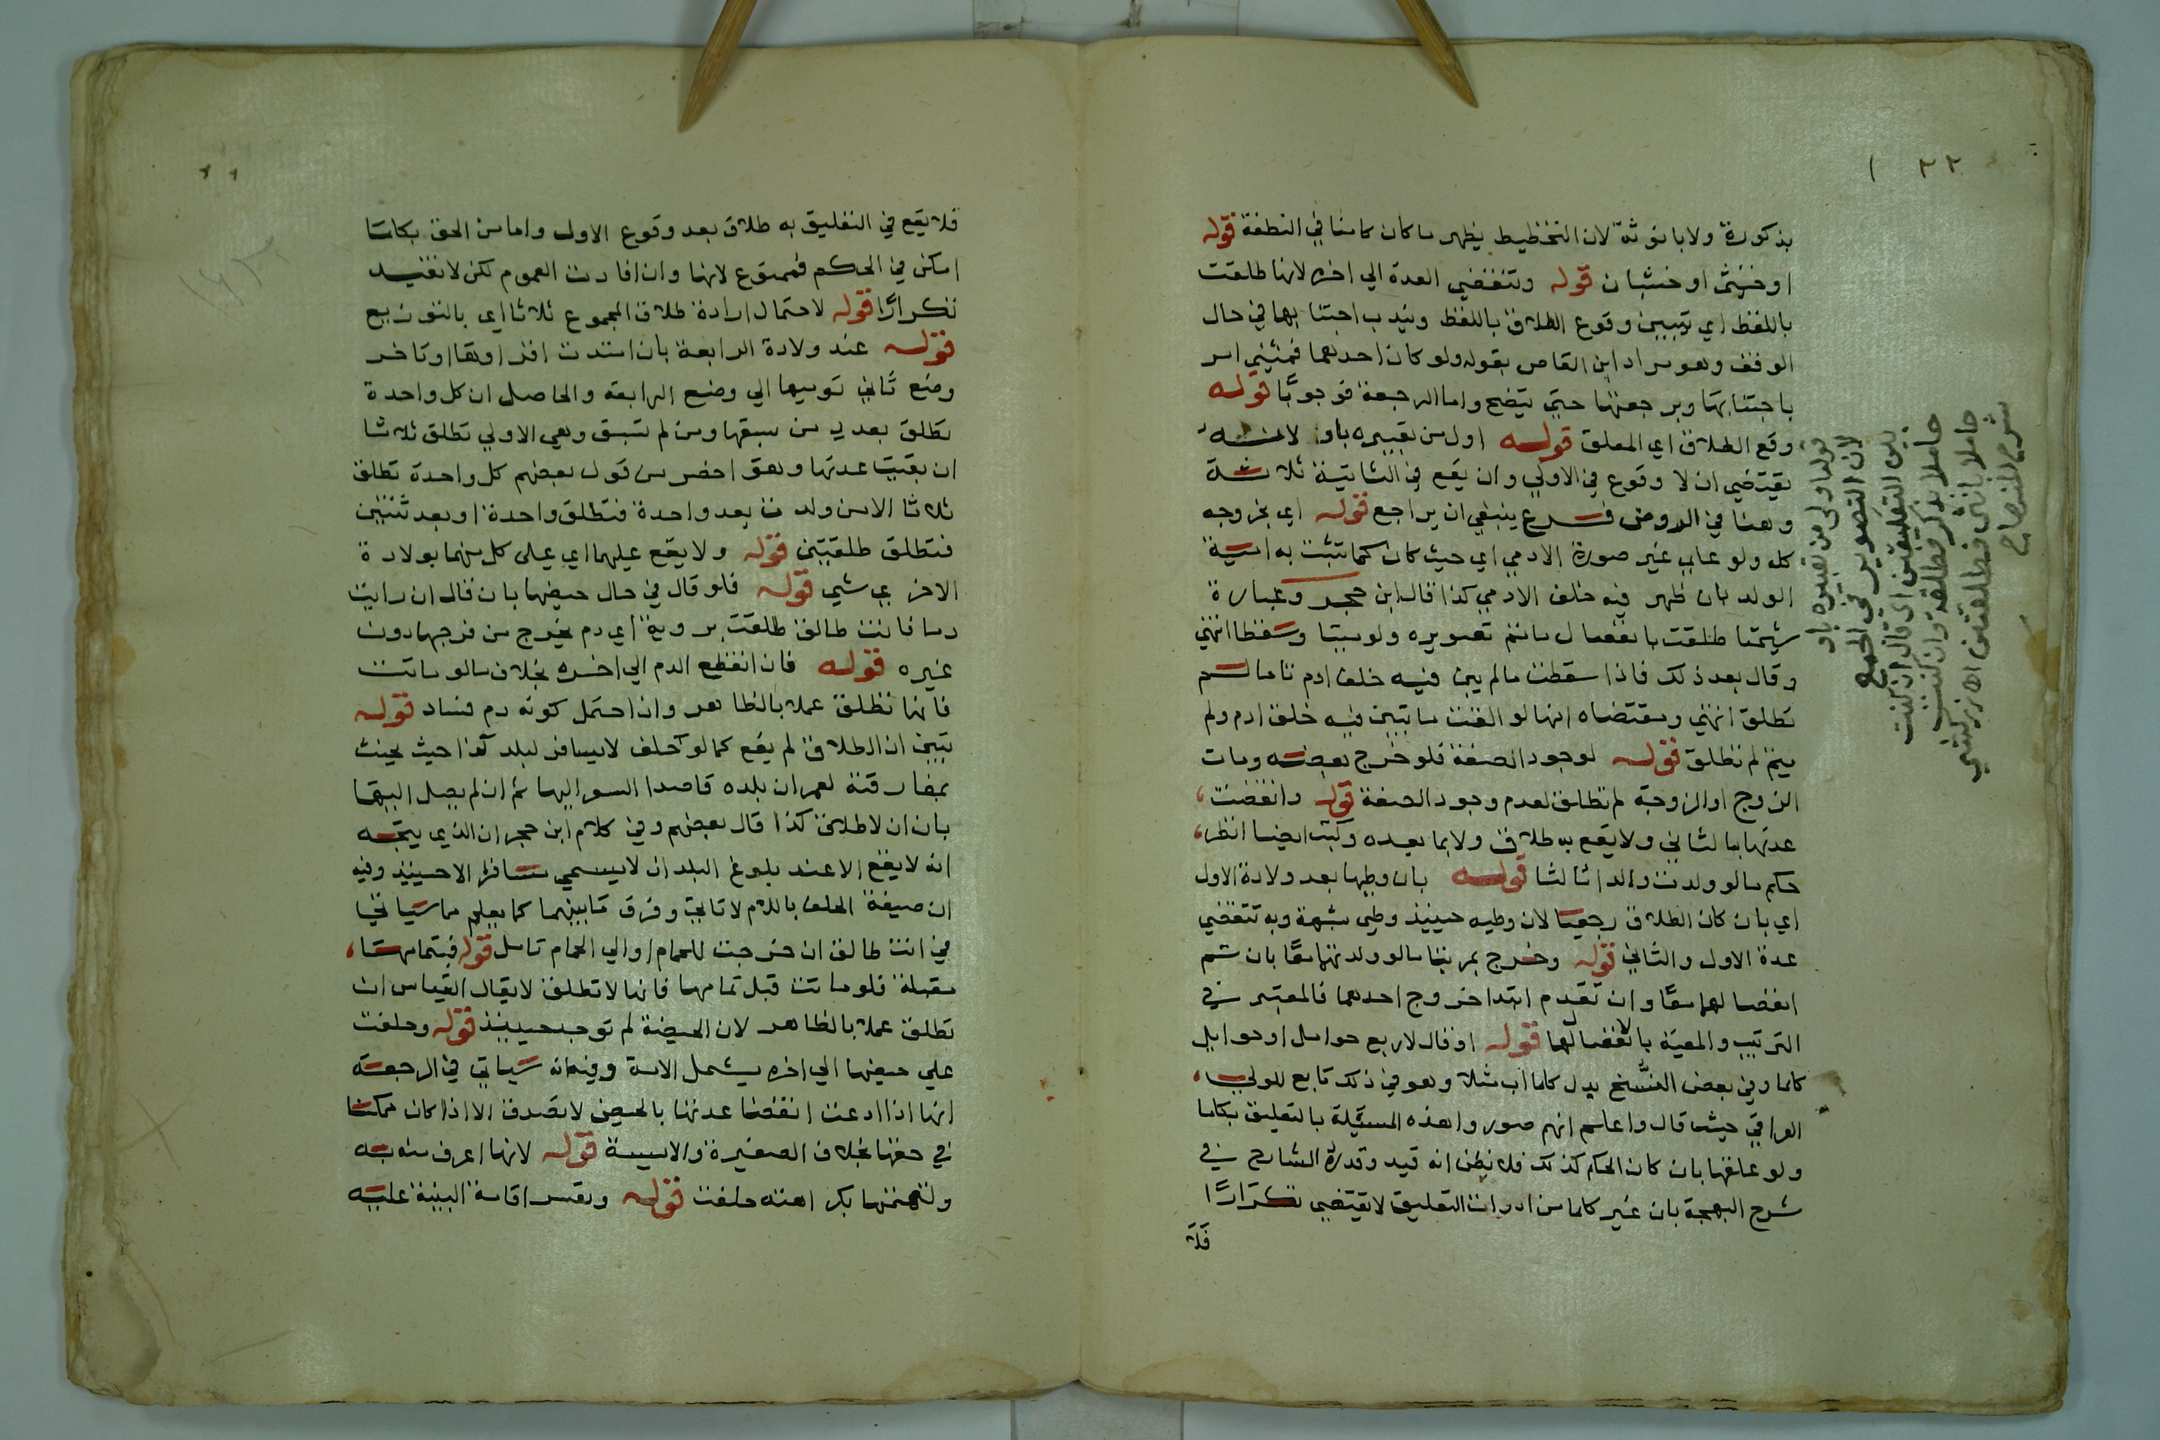 بذكورة ولا بانوثة لان التخطيط يظهر ما كان كامنا في النطفة قوله
او خنثى او خنثيان قوله وتنقضي العدة الي اخره لانها طلقت
باللفظ اي تبيين وقوع الطلاق باللفظ ويندب اجتنابها في حال
الوقف وهو مراد ابن القاص بقوله ولو كان احدهما فمثنى امر
باجتنابها وبرجعتها حتى يتضح واما الرجعة فوجوبا قوله
وقع الطلاق اي المعلق قوله اولي من تعبيره باو لانه
يقتضي ان لا وقوع في الاولي وان يقع في الثانية ثلاثة
وهنا في الروض فرع ينبغي ان يراجع قوله اي بخروجه
كله ولو علي غير صورة الادمي اي حيث كان كما تثبت به امية
الولد بان ظهر فيه خلق الادمي كذا قال ابن حجر وعبارة
شيخنا طلقت بانفصال ما تم تصويره ولو ميتا وسقطا انتهي
وقال بعد ذلك فاذا سقطت ما لم يبن فيه خلق ادم تاما لم
تطلق انتهي ومقتضاه انها لو القت ما تبين فيه خلق ادم ولم
يتم لم تطلق قوله لوجود الصفة فلو خرج بعضه ومات
الزوج او الزوجة لم تطلق لعدم وجود الصفة قوله وانقضت
عدتها بالثاني ولا يقع به طلاق ولا بما بعده وكتب ايضا انظر
حكم ما لو ولدت ولدا ثالثا قوله بان وطيها بعد ولادة الاول
اي بان كان الطلاق رجعيا لان وطيه حينيذ وطي شبهة وبه تنقضي
عدة الاول والثاني قوله وخرج بمرتبا ما لو ولدتهما معا بان تم
انفصالهما معا وان تقدم ابتدا خروج احدهما فالمعتبر في
الترتيب والمعية بالانفصال لهما قوله او قال لاربع حوامل او حوايل
كلما وفي بعض النسخ بدل كلما اب مثلا وهو في ذلك تابع للولي
العراقي حيث قال واعلم انهم صوروا هذه المسئلة بالتعليق بكلما
ولو علقها بان كان الحكم كذلك فلا نظن انه قيد وقد رده الشارح في
شرح البهجة بان غير كلما من ادوات التعليق لا يقتضي تكرارا
فلا
قوله اولي من تعبيره باو
لان التصوير في الجمع
بين التعليقين اي قال ان كنت
حاملا بذكر فطلقة وان كنت
حاملا بانثى فطلقتين
شرح المنهاج
فلا يقع في التعليق به طلاق بعد وقوع الاول واما من الحق بكلما
امكن في الحكم فممنوع لانها وان افادت العموم لكن لا تفيد
تكرارا قوله لاحتمال ارادة طلاق المجموع ثلاثا اي بالتوزيع
قوله عند ولادة الرابعة بان امتدت اقراوها او تاخر
وضع ثاني توميها الي وضع الرابعة والحاصل ان كل واحدة
تطلق بعدد من سبقها ومن لم تسبق وهي الاولي تطلق ثلاثا
ان بقيت عدتها وهو اخصر من قول بعضهم كل واحدة تطلق
ثلاثا الا من ولدت بعد واحدة فتطلق واحدة او بعد ثنتين
فتطلق طلقتين قوله ولا يقع عليهما اي علي كل منهما بولادة
الاخري شي قوله فلو قال في حال حيضها بان قال ان رايت
دما فانت طالق طلقت بروية اي دم يخرج من فرجها دون
غيره قوله فان انقطع الدم الي اخره بخلاف ما لو ماتت
فانها تطلق عملا بالظاهر وان احتمل كونه دم فساد قوله
تبين ان الطلاق لم يقع كما لو حلف لا يسافر لبلد كذا حيث يحنث
بمفارقة لعمران بلده قاصدا السفر اليها ثم ان لم يصل اليها
بان ان لا طلاق كذا قال بعضهم وفي كلام ابن حجر ان الذي يتجه
انه لا يقع الا عند بلوغ البلد ان لا يسمي مسافرا الا حينيذ وفيه
ان صيغة الحلف باللام لا تالي وفرق ما بينهما كما يعلم مما سياتي
في انت طالق ان خرجت للحمام او الي الحمام تامل قوله فبتمامها
مقبلة فلو ماتت قبل تمامها فانها لا تطلق لا يقال القياس ان
تطلق عملا بالظاهر لان الحيضة لم توجد حينيذ قوله وحلفت
علي حيضها الي اخره يشمل الامة وفيه انه سياتي في الرجعة
انها اذا ادعت انقضا عدتها بالحيض لا تصدق الا اذا كان ممكنا
في حقها بخلاف الصغيرة والايسة قوله لانها اعرف منه به
ولتهمتها بكراهته حلفت قوله وتعسر اقامة البينة عليه